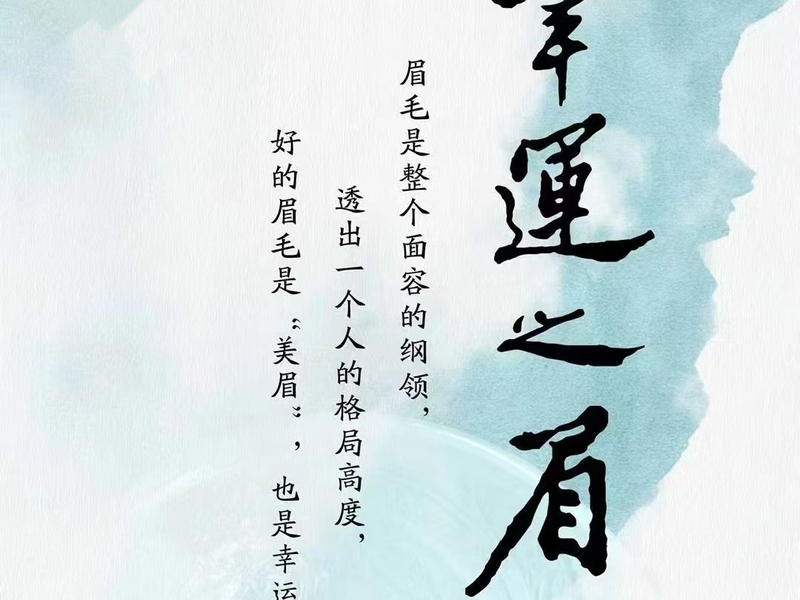 幸運之眉
眉毛是整个面容的纲领，
透出一个人的格局高度，
好的眉毛是“美眉”，也是幸运